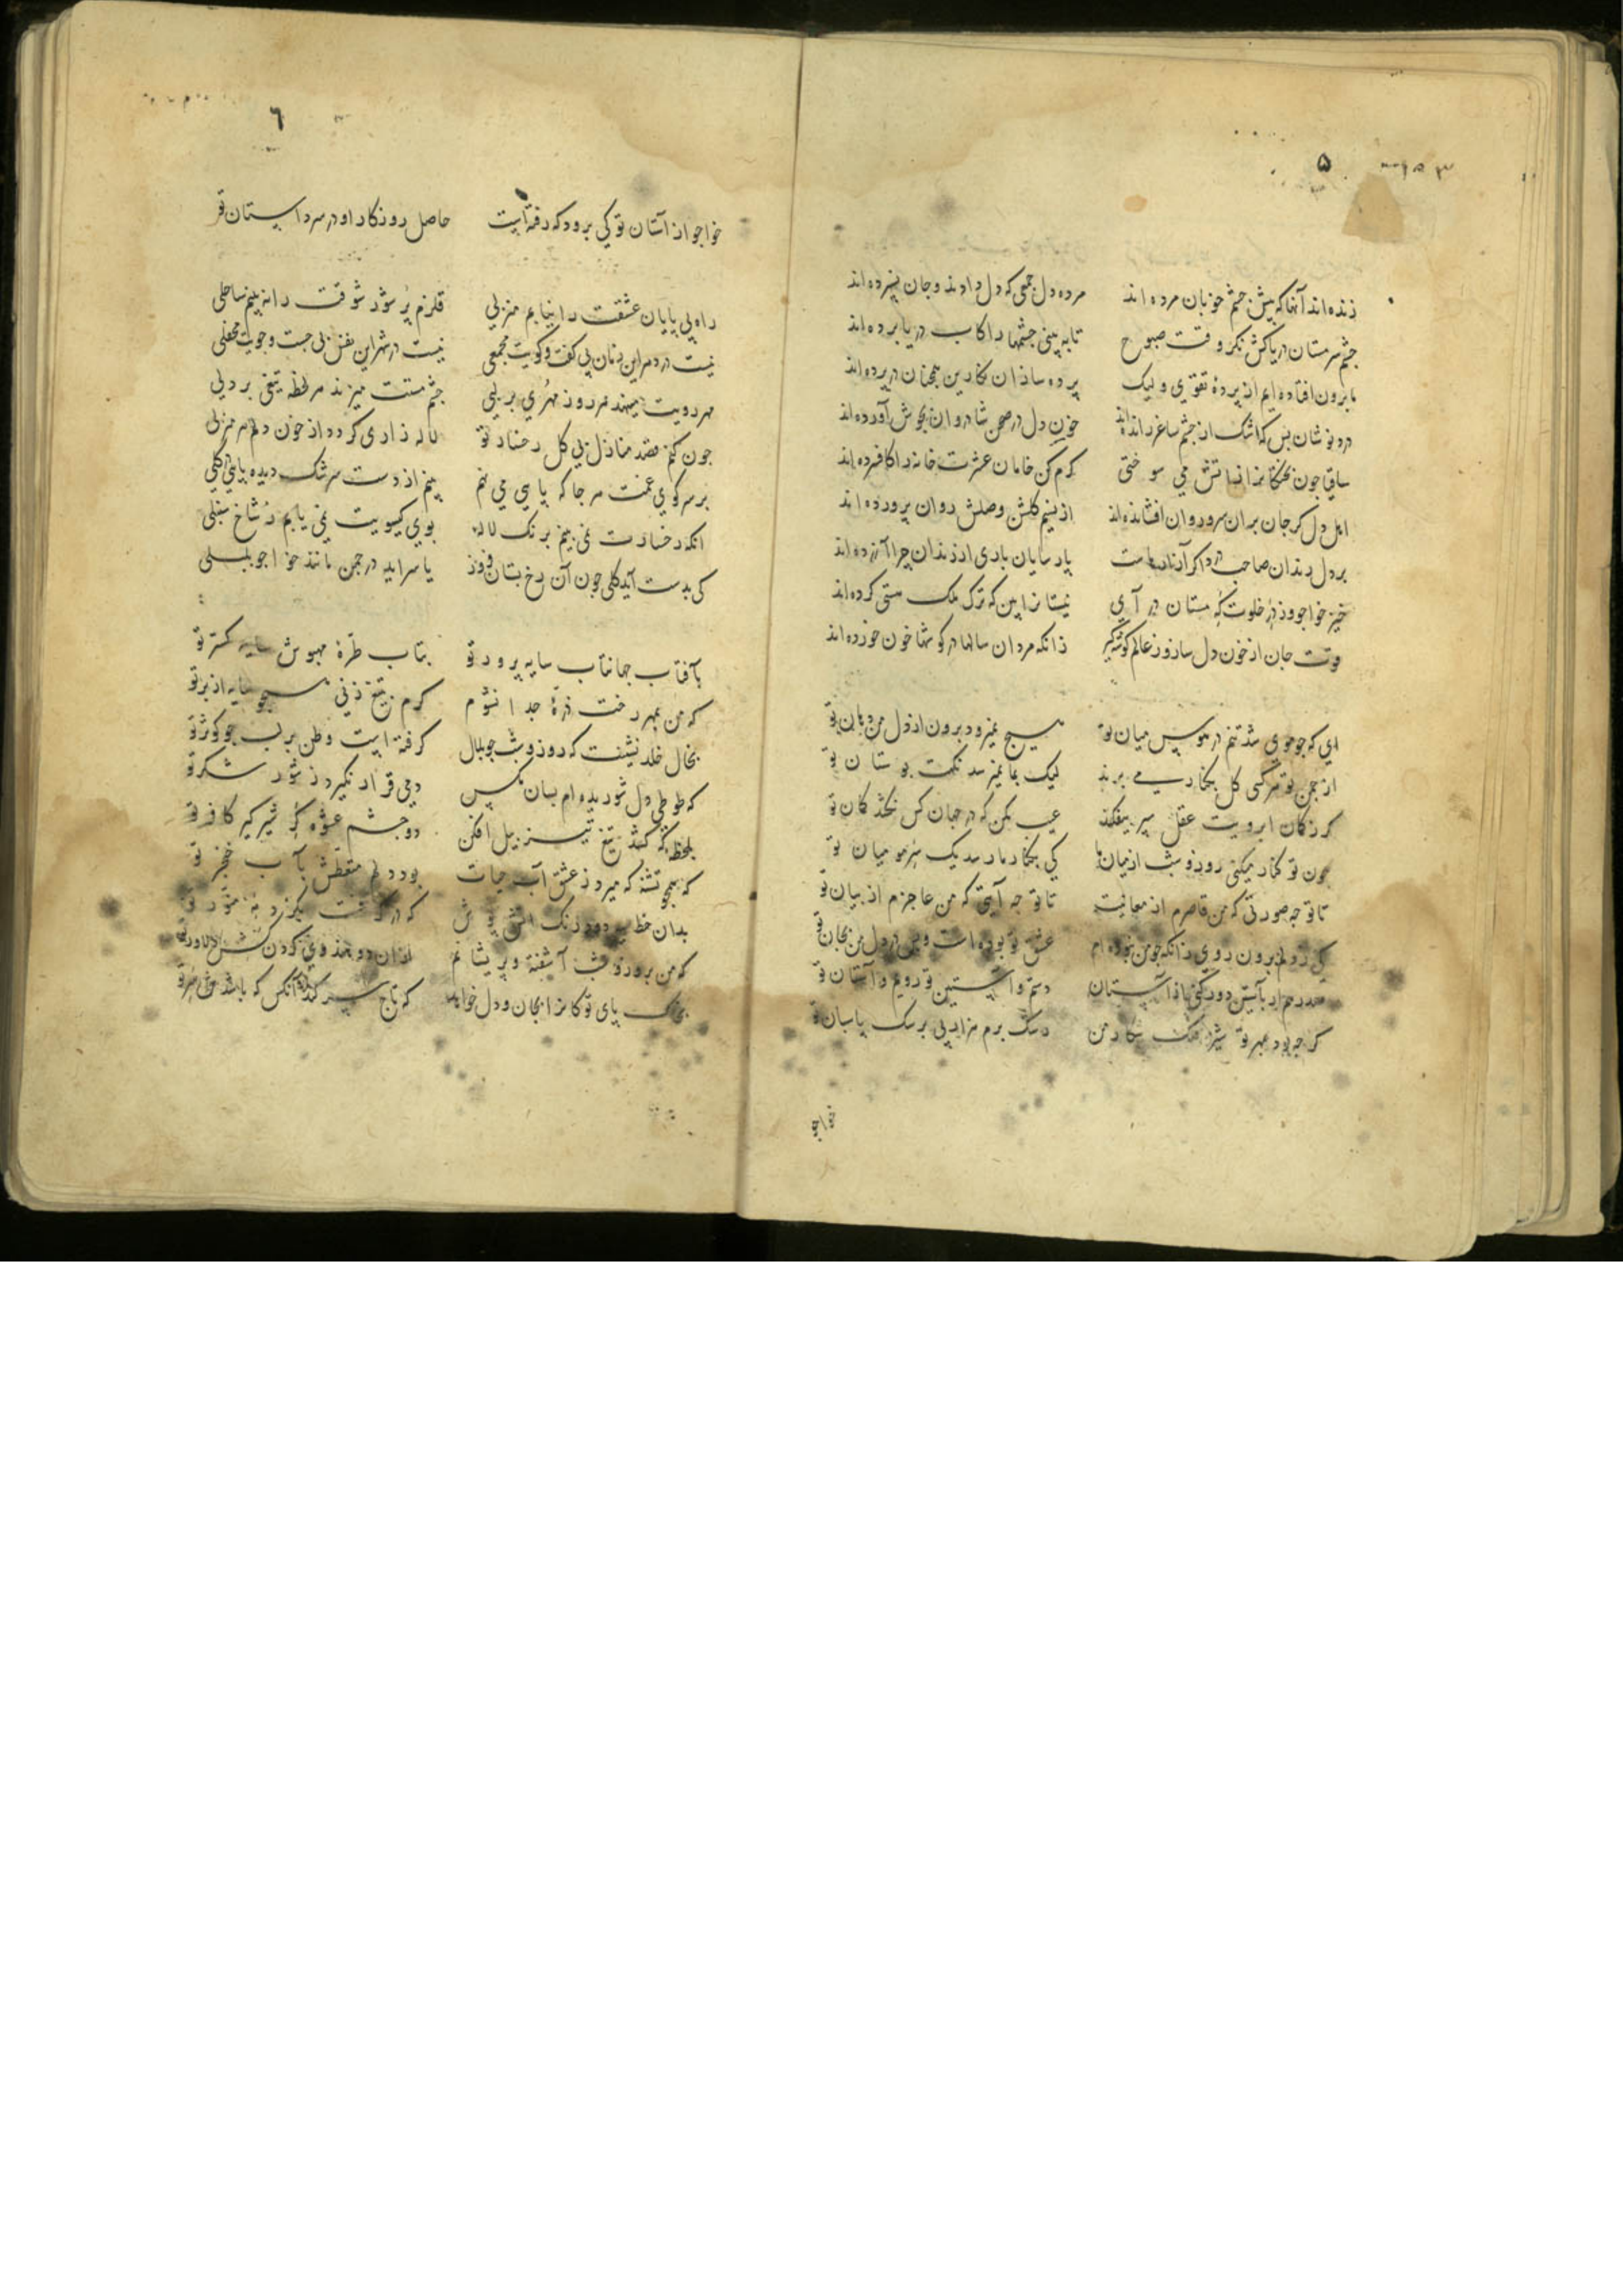 ۵
زنده‌اند آنها که پیش چشم خوبان مرده‌اند مرده دل جمعی که دل دادند و جان نسپرده‌اند
چشم سرمستان دریاکش نگر وقت صبوح تا به بینی چشمها را کاب دریا برده‌اند
ما برون افتاده‌ایم از پردهٔ تقوی ولیک پرده سازان نگارین همچنان در پرده‌اند
درد نوشان بس که اشک از چشم ساغر رانده‌اند خون دل در صحن شادروان بجوش آورده‌اند
ساقیا چون پختگانرا ز آتش می سوختی کرم کن خامان عشرت خانه را کافسرده‌اند
اهل دل کر جان بران سرو روان افشانده‌اند از نسیم کلشن وصلش روان پرورده‌اند
بر دل رندان صاحب درد اکر آزارهاست پارسایان باری از رندان چرا آزرده‌اند
خیز خواجو وز در خلوتکه مستان در آی نیستانرا بین که ترک ملک هستی کرده‌اند
قوت جان از خون دل ساز و ز عالم کوشه کیر زانکه مردان سالها در کوشها خون خورده‌اند
ای که چو موی شد تنم در هوس میان تو هیچ نمیرود برون از دل من دهان تو
از چمن تو هر کسی کل بکنار می برند لیک بما نمیرسد نکهت بوستان تو
کر ز کمان ابرویت عقل سپر بیفکند عیب مکن که در جهان کس نکشد کمان تو
چون تو کنار میکنی روز و شب از میان ما کی بکنار ما رسد یک سر مو میان تو
تا تو چه صورتی که من قاصرم از معانیت تا تو چه آیتی که من عاجزم از بیان تو
کی ز دلم برون روی زانکه چو من نبوده‌ام عشق تو بوده است و بس در دل من بجان تو
در هم از بآستین دور کنی از آستان دستم و آستین تو رویم و آستان تو
کر چه بود بمهر تو شیر فلک شکار من رشک برم هزار پی بر سک پاسبان تو
خواجو
٦
خواجو از آستان تو کی برود که رفته است حاصل روزکار او در سر داستان تو
راه بی پایان عشقت را نیابم منزلی قلزم پر شور شوقت را نه بینم ساحلی
نیست در دهر این زمان بی کفت و کویت مجمعی نیست در شهر این نفس بی جست و جویت محفلی
مهر رویت مینهد هر روز مهری بر لبی چشم مستت میزند هر لحظه تیغی بر دلی
چون کنم قصد منازل بی کل رخسار تو لاله زاری کردد از خون دلم هر منزلی
بر سر کوی غمت هر جا که پایی می نهم بینم از دست سرشک دیده پایی در کلی
آنکه رخسارت نمی بینم برنک لاله بوی کیسویت نمی یابم ز شاخ سنبلی
کی بدست آید کلی چون آن رخ بستان فروز یا سراید در چمن مانند خواجو بلبلی
بآفتاب جهانتاب سایه پرور تو بتاب طرهٔ مهپوش سایه کستر تو
که من بمهر رخت ذرهٔ جدا نشوم کرم به تیغ زنی همچو سایه از بر تو
بخال خلد نشینت که روز و شب چو بلال کرفته است وطن بر لب چو کوثر تو
که طوطی دل شوریده‌ام بسان مکس دمی قرار نکیرد ز شور شکر تو
بلحظه که کشد تیغ تیز پیل افکن دو چشم عشوه کر شیر کیر کافر تو
که همچو تشنه که میرد ز عشق آب حیات بود دلم متعطش بآب خنجر تو
بدان خط سیه دود رنک آتش پوش که در کرفت بکرد رخ منور تو
که من بروز و شب آشفته و پریشانم از آن دو هندوی کردن کش دلاور تو
بخاک پای تو کانرا بجان و دل خواهد که تاج سر کند آنکس که باشدش سر تو